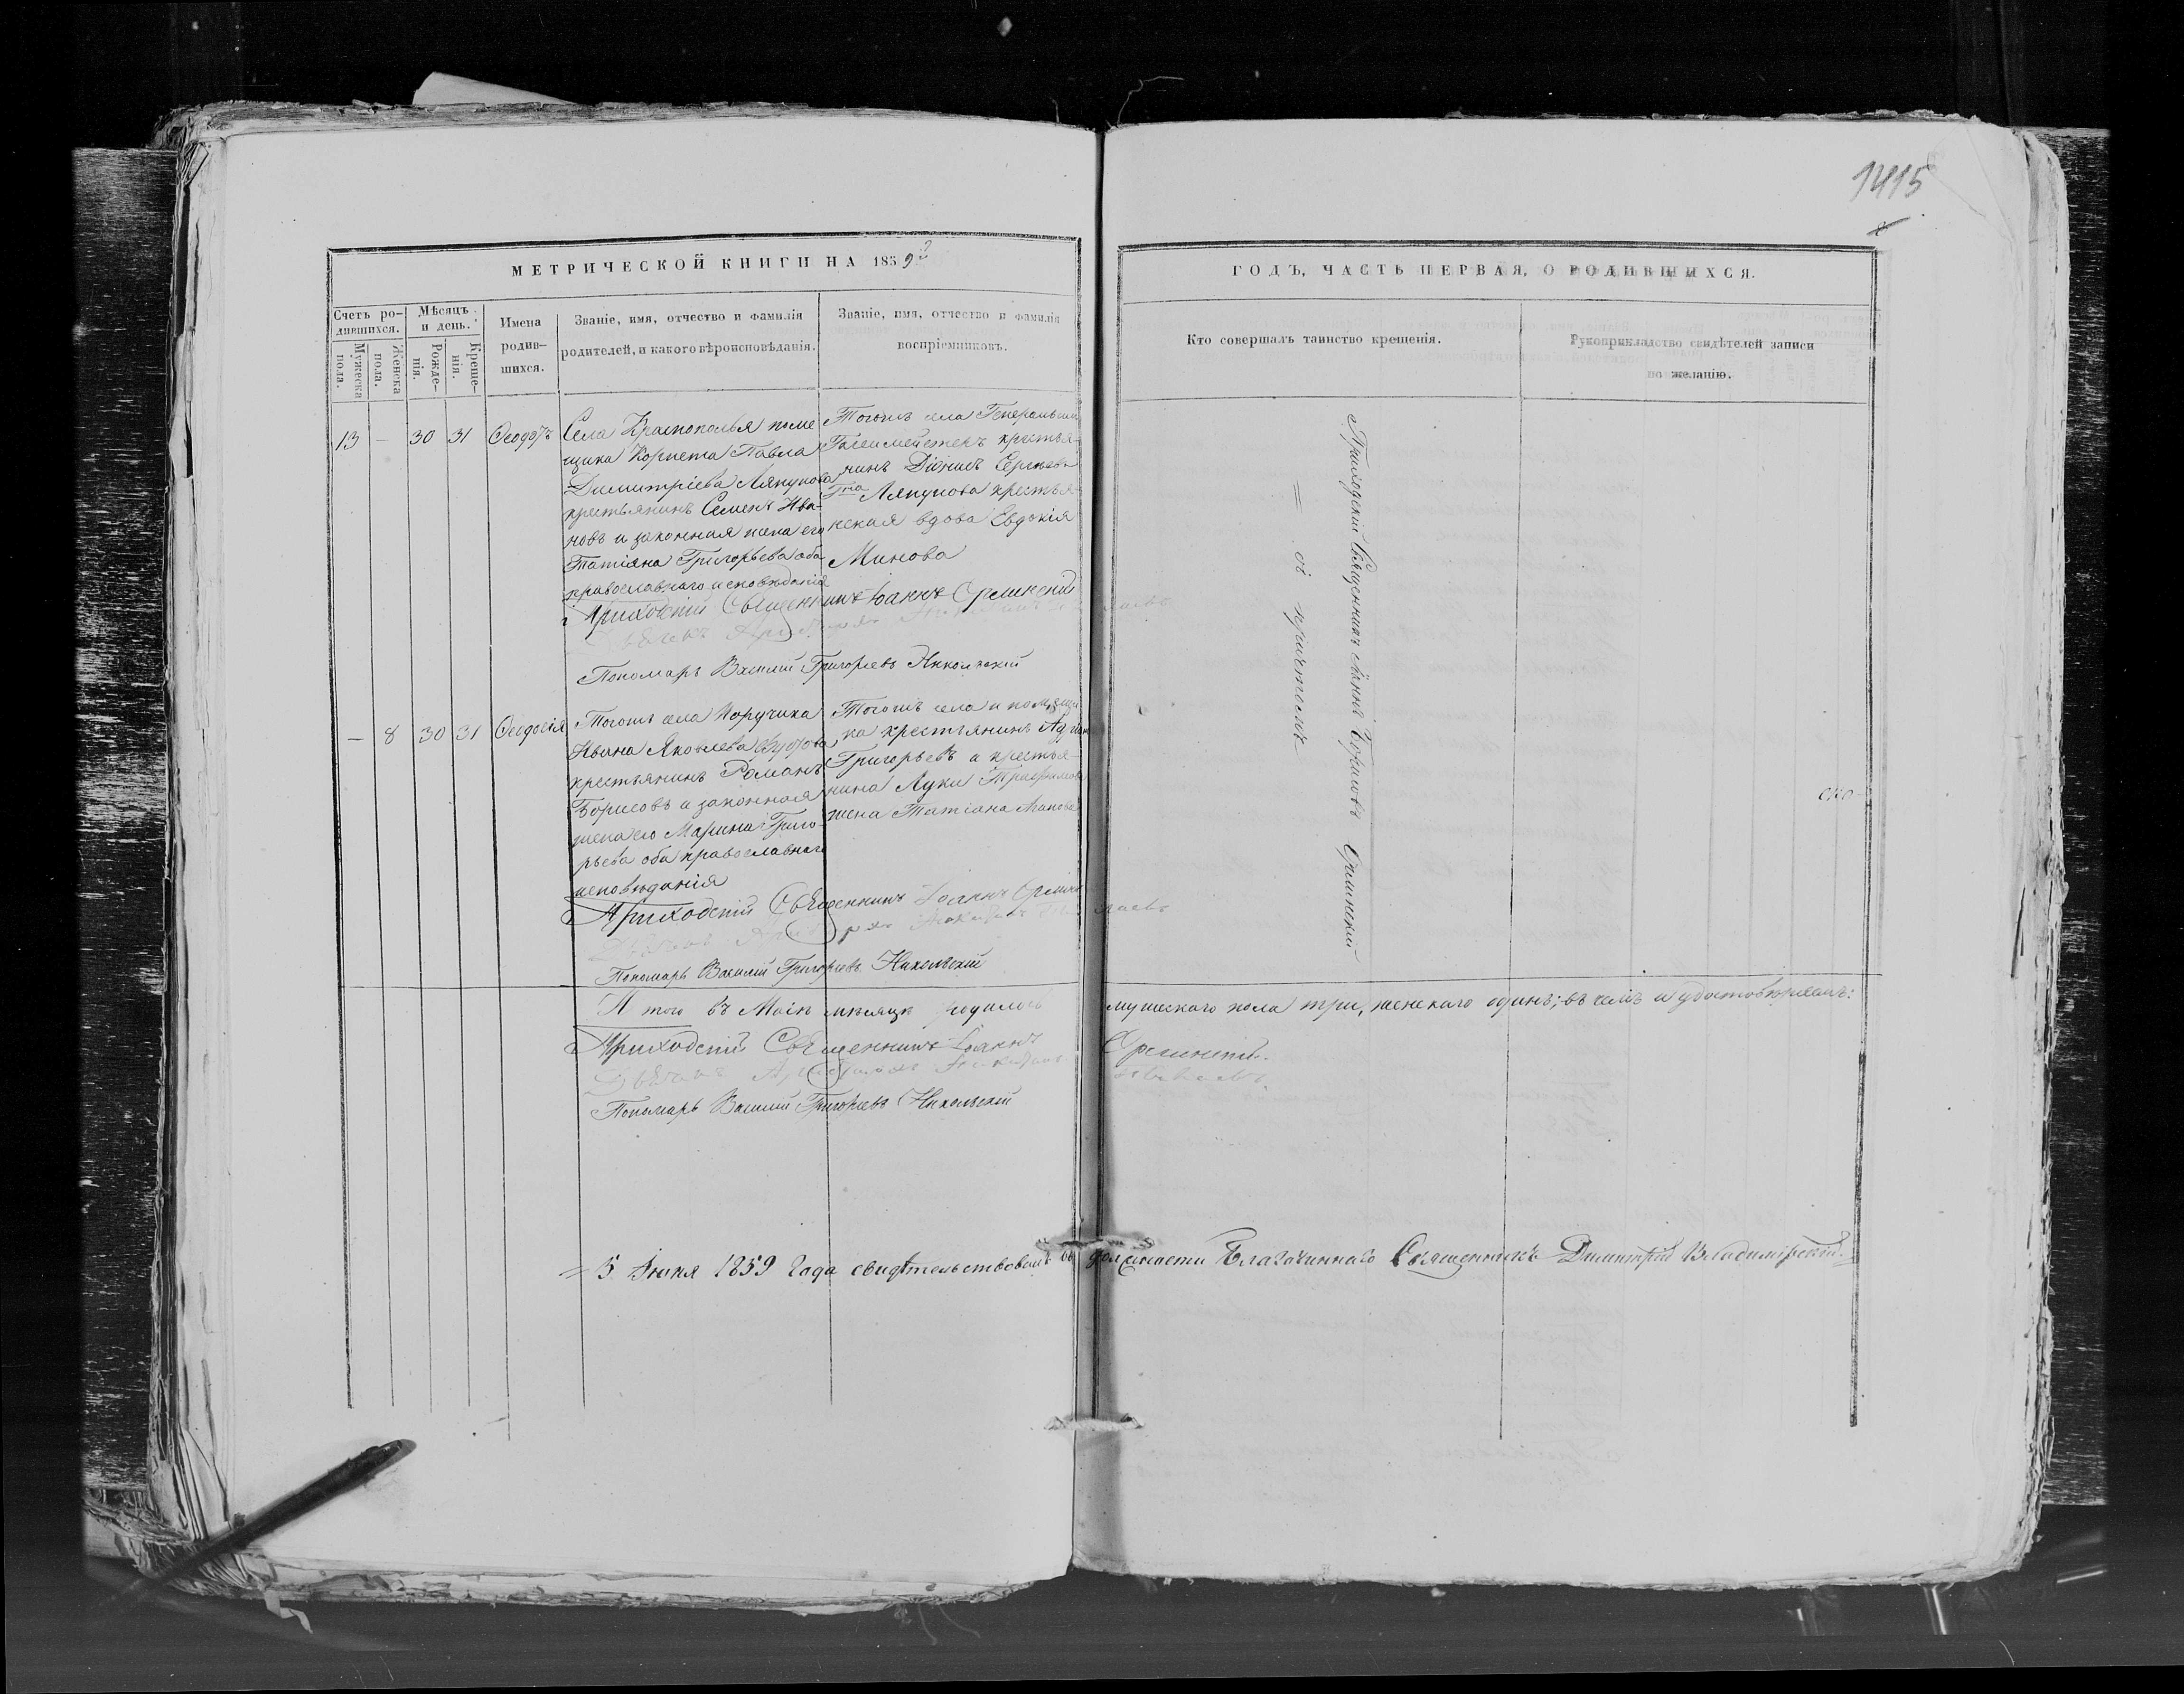 1415
МЕТРИЧЕСКОЙ КНИГИ НА 1859
ГОДЪ, ЧАСТЬ ПЕРВАЯ, О РОДИВШИХСЯ.
Счетъ ро-
дившихся.
Мужеска
пола.
Женска
пола.
Мѣсяцъ
и день.
Рожде-
нія.
Креще-
нія.
Имена
родив-
шихся.
Званіе, имя, отчество и фамилія
родителей, и какого вѣроисповѣданія.
Званіе, имя, отчество и фамилія
воспріемниковъ.
Кто совершалъ таинство крещенія.
Рукоприкладство свидѣтелей записи
по желанію.
13 — 30 31 Ѳеодотъ
Села Краснополья поме
щика Корнета Павла
Димитріева Ляпунова
крестьянинъ Семенъ Ива-
новъ и законная жена его
Татіяна Григорьева оба
православнаго исповѣданія
Тогожъ села
крестья-
нинъ Діонисъ Сергѣевъ
Ляпунова крестья-
нская вдова Евдокія
Минова
Приходскій Священникъ Іоаннъ
съ причтомъ
Приходскій Священникъ Іоаннъ
Пономарь Василій Григорьевъ Никольскій
— 8 30 31 Ѳеодосія
Тогожъ села Поручика
Ивана Яковлева
крестьянинъ Романъ
Борисовъ и законная
жена его Марина Григо-
рьева оба православнаго
исповѣданія
Тогожъ села и помѣщи
ка крестьянинъ
Григорьевъ и крестья-
нина Луки Трофимова
жена Татіана
Приходскій Священникъ Іоаннъ
Пономарь Василій Григорьевъ Никольскій
И того въ Маіѣ мѣсяцѣ родилось мужескаго пола три, женскаго одинъ; въ чемъ и удостовѣряемъ:
Приходскій Священникъ Іоаннъ
Пономарь Василій Григорьевъ Никольскій
5 Іюня 1859 года свидѣтельствовалъ въ должности Благочиннаго Священникъ Димитрій Владимірскій